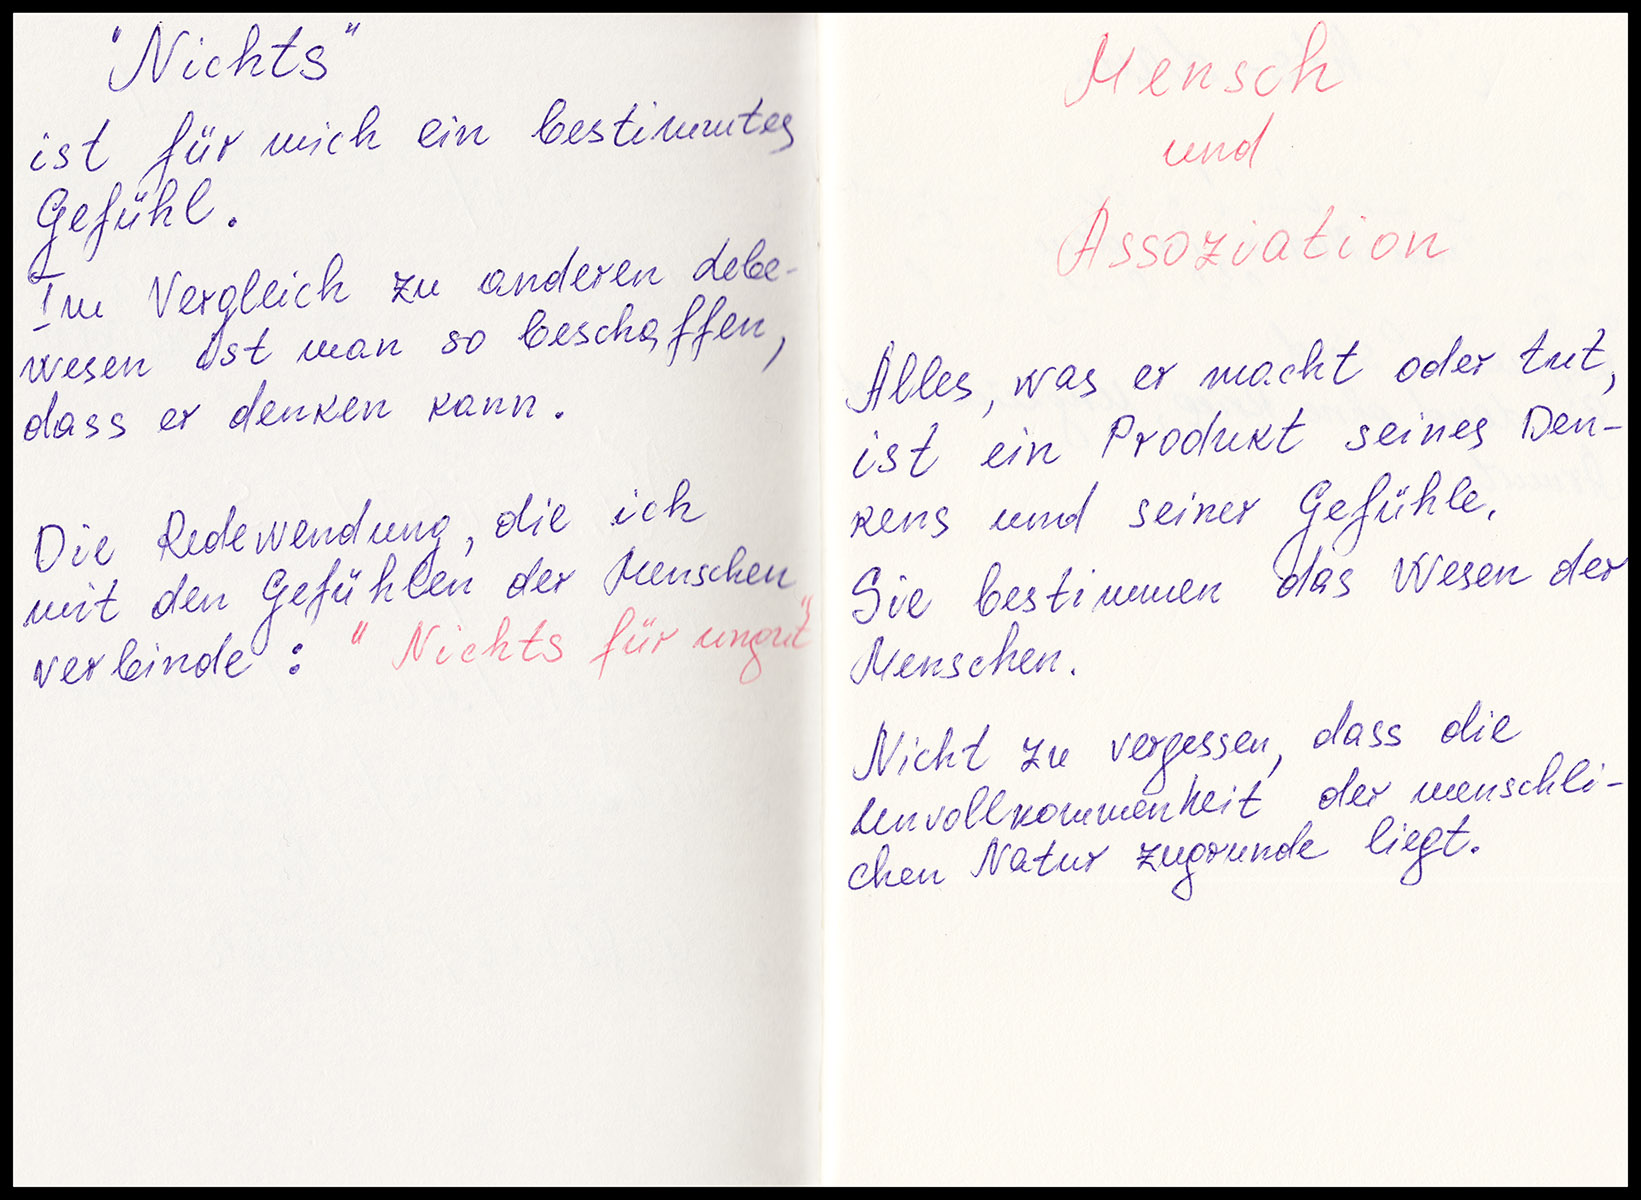 "Nichts"
ist für mich ein bestimmtes
Gefühl.
Im Vergleich zu anderen Lebe-
wesen ist man so beschaffen,
dass er denken kann.
Die Redewendung, die ich
mit den Gefühlen der Menschen
verbinde: "Nichts für ungut"
Mensch
und
Assoziation
Alles, was er macht oder tut,
ist ein Produkt seines Den-
kens und seiner Gefühle.
Sie bestimmen das Wesen der
Menschen.
Nicht zu vergessen, dass die
Unvollkommenheit der menschli-
chen Natur zugrunde liegt.